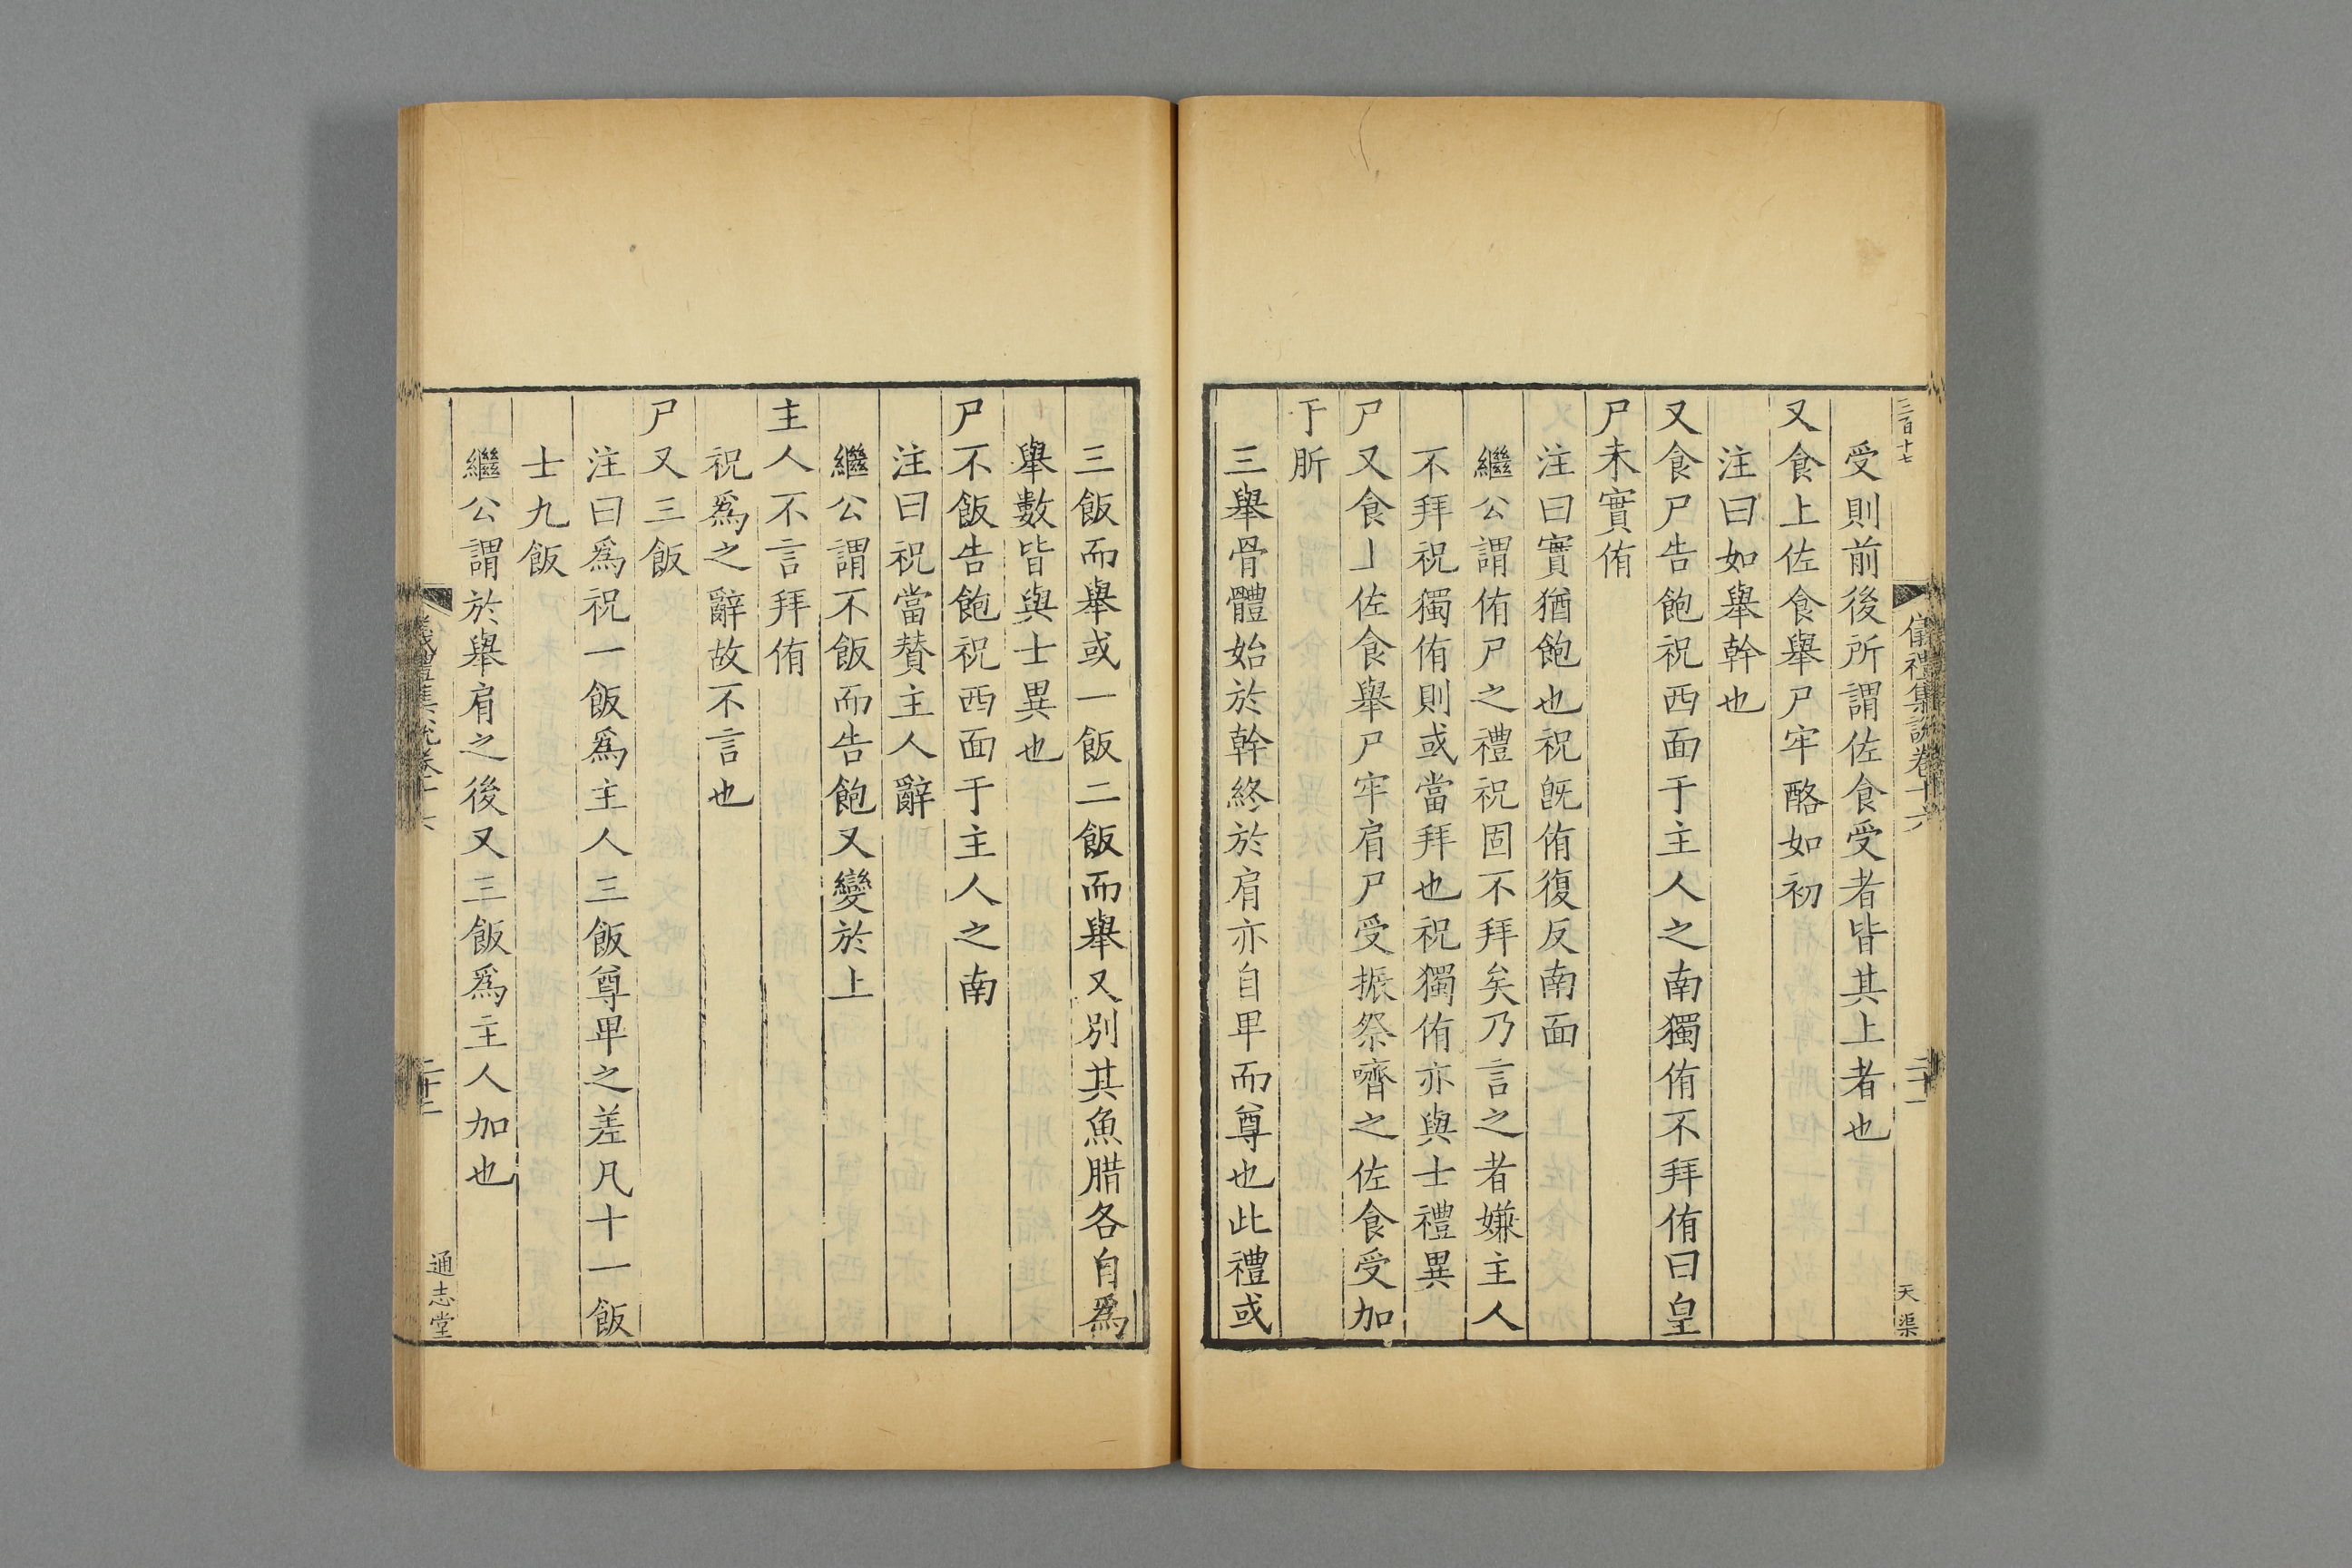 三百十七
儀禮集說卷十六
二十一
天渠
受則前後所謂佐食受者皆其上者也
又食上佐食舉尸牢骼如初
注曰如舉幹也
又食尸告飽祝西面于主人之南獨侑不拜侑曰皇
尸未實侑
注曰實猶飽也祝旣侑復反南面
繼公謂侑尸之禮祝固不拜矣乃言之者嫌主人
不拜祝獨侑則或當拜也祝獨侑亦與士禮異
尸又食上佐食舉尸牢肩尸受振祭嚌之佐食受加
于肵
三舉骨體始於幹終於肩亦自卑而尊也此禮或
三飯而舉或一飯二飯而舉又別其魚腊各自爲
舉數皆與士異也
尸不飯告飽祝西面于主人之南
注曰祝當贊主人辭
繼公謂不飯而告飽又變於上
主人不言拜侑
祝爲之辭故不言也
尸又三飯
注曰爲祝一飯爲主人三飯尊卑之差凡十一飯
士九飯
繼公謂於舉肩之後又三飯爲主人加也
儀禮集說卷十六
通志堂